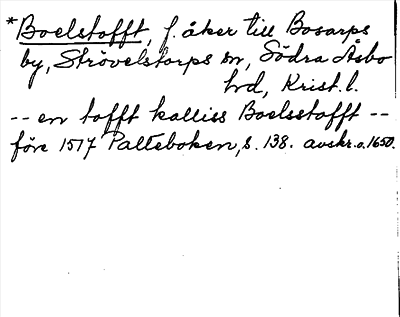 *Boelstofft, f. åker till Bosarps
by, Strövelstorps sn, Södra Åsbo
hd, Krist. l.
-- en tofft kalliss Boelsstofft --
före 1517 Palteboken, s. 138. avskr. o. 1650.